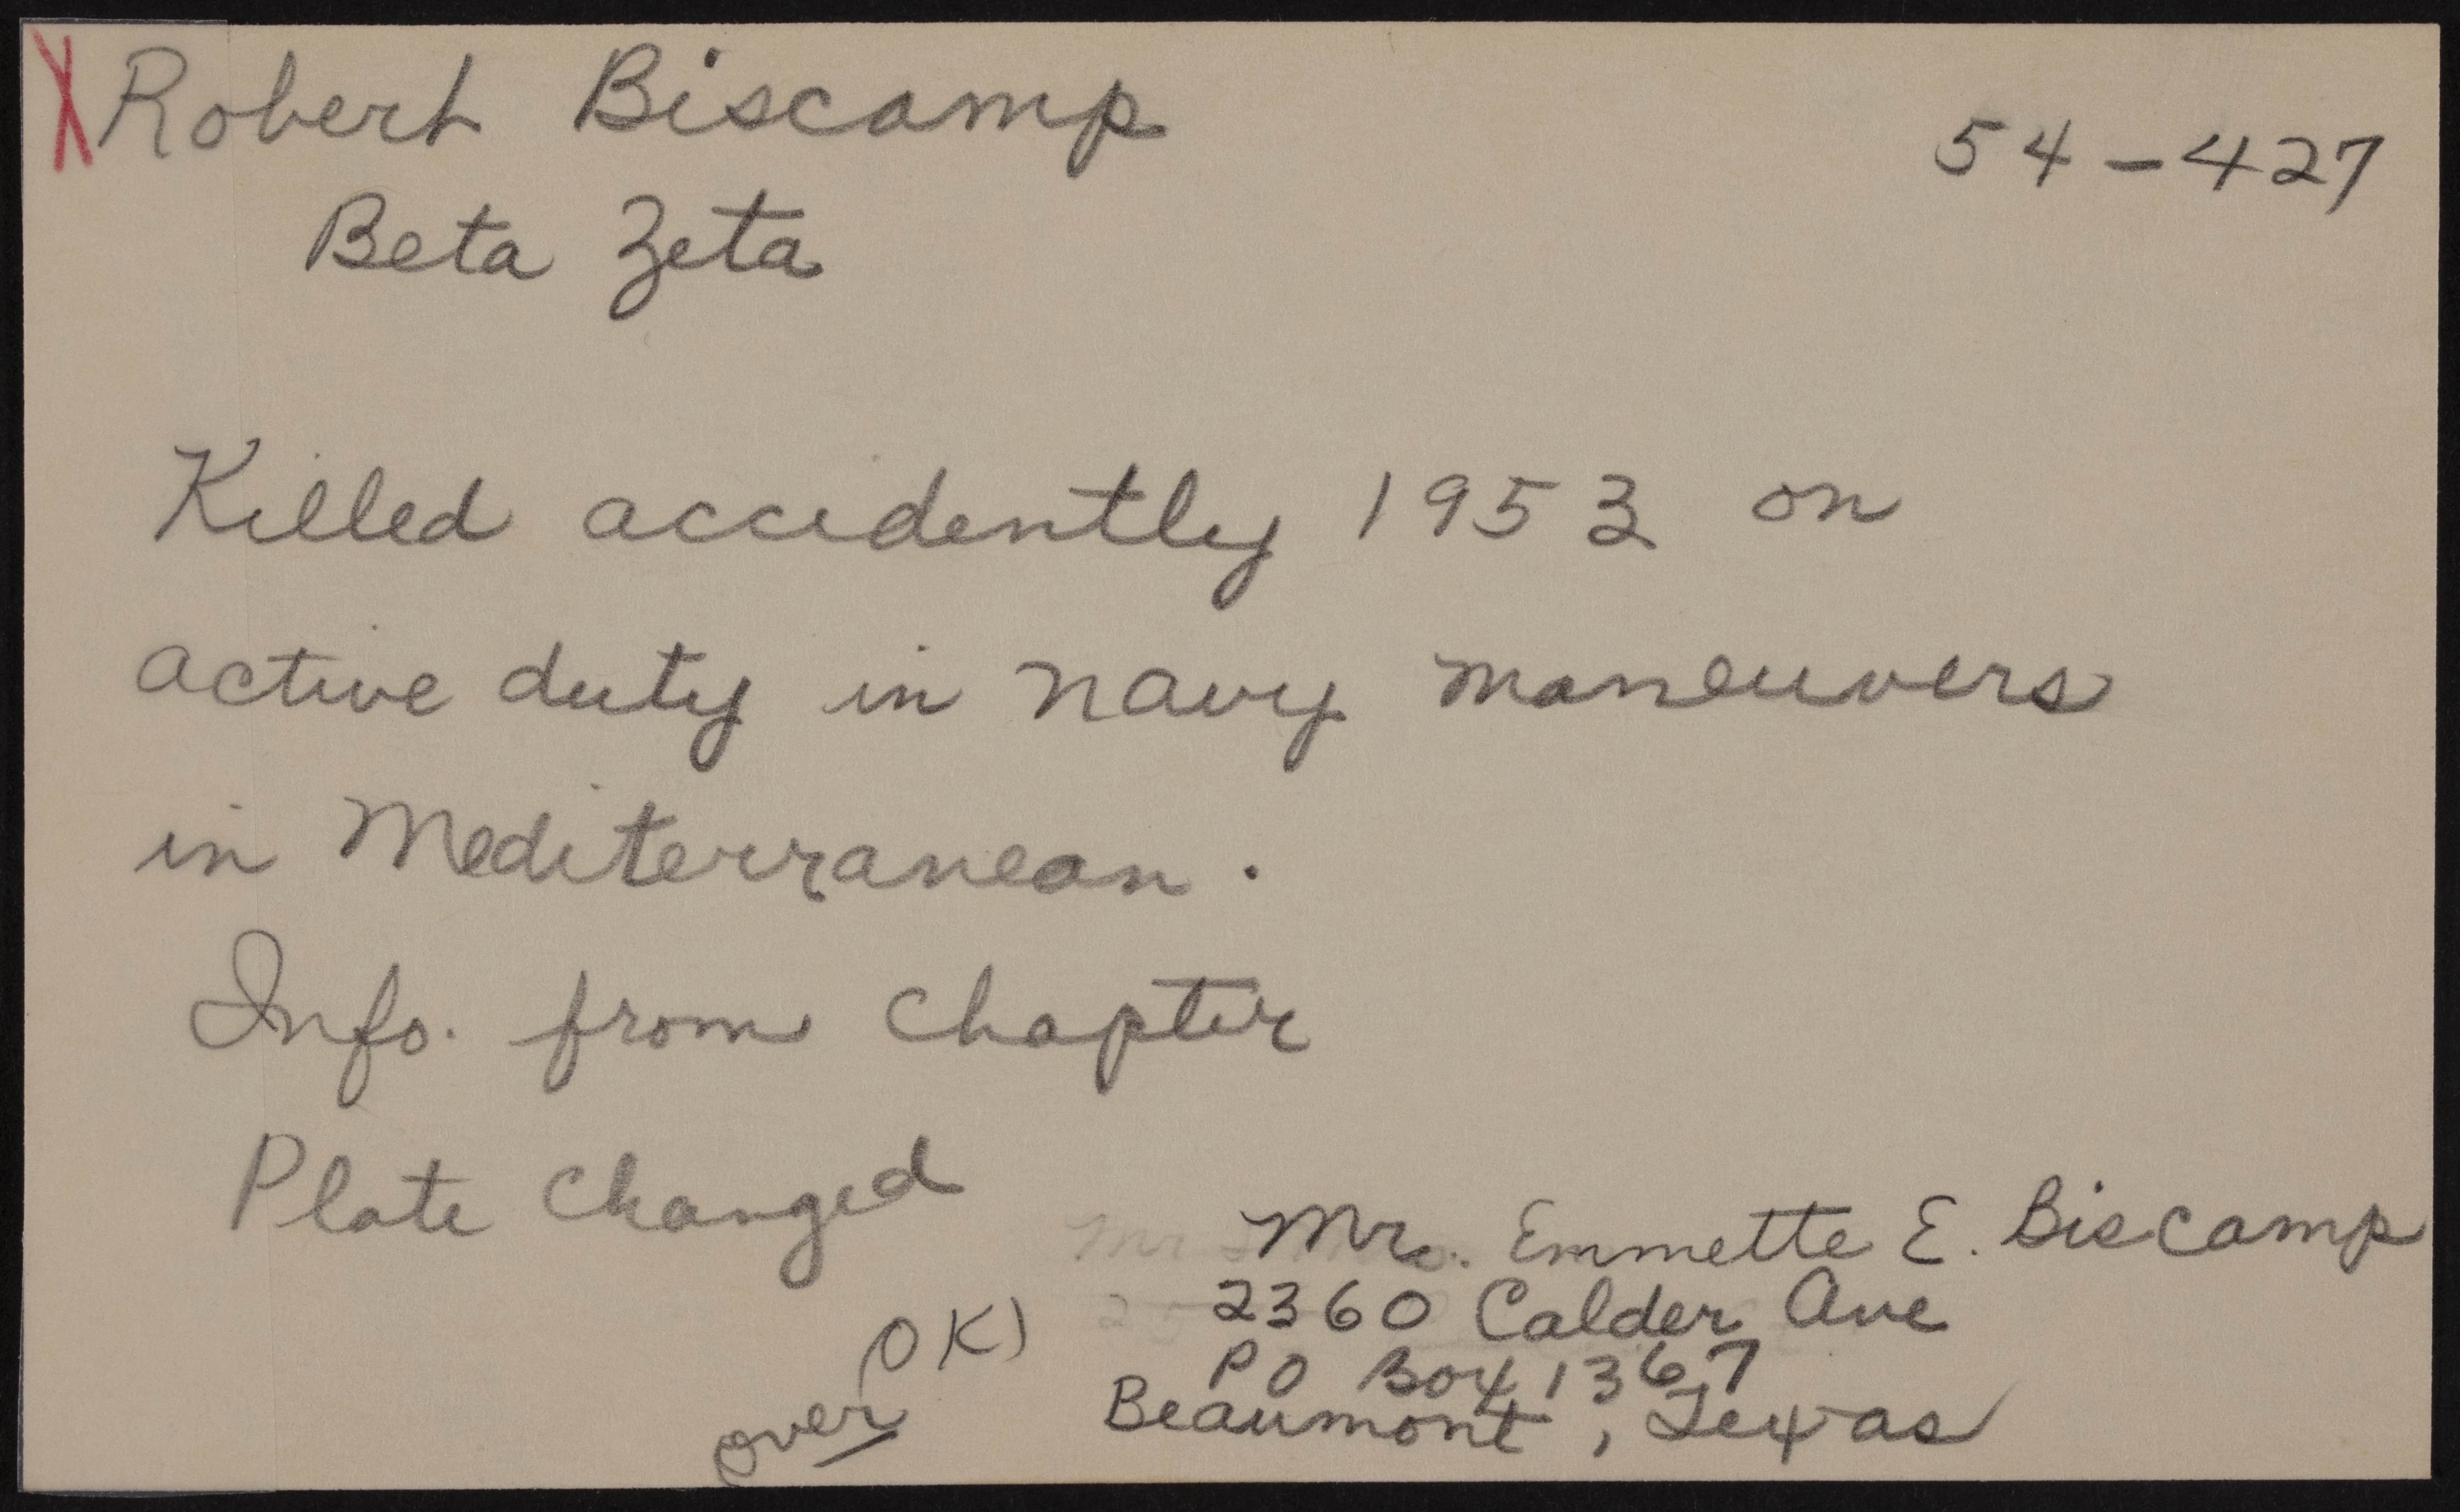 X Robert Biscamp
54-427
Beta Zeta
Killed accidently 1953 on
active duty in navy maneuvers
in Mediterranean.
Info. from chapter
Plate changed
Mr. Emmette E. Biscamp
2360 Calder Ave
PO Box 1367
Beaumont, Texas
(OK)
over